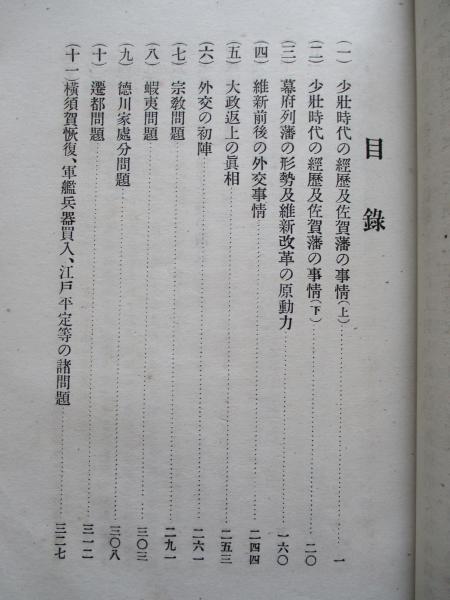 目錄
(一) 少壯時代の經歷及佐賀藩の事情(上)……一
(二) 少壯時代の經歷及佐賀藩の事情(下)……二〇
(三) 幕府列藩の形勢及維新改革の原動力……一六〇
(四) 維新前後の外交事情……二四四
(五) 大政返上の眞相……二五三
(六) 外交の初陣……二六一
(七) 宗敎問題……二九一
(八) 蝦夷問題……三〇三
(九) 德川家處分問題……三〇八
(十) 遷都問題……三一二
(十一) 橫須賀恢復、軍艦兵器買入、江戶平定等の諸問題……三二七